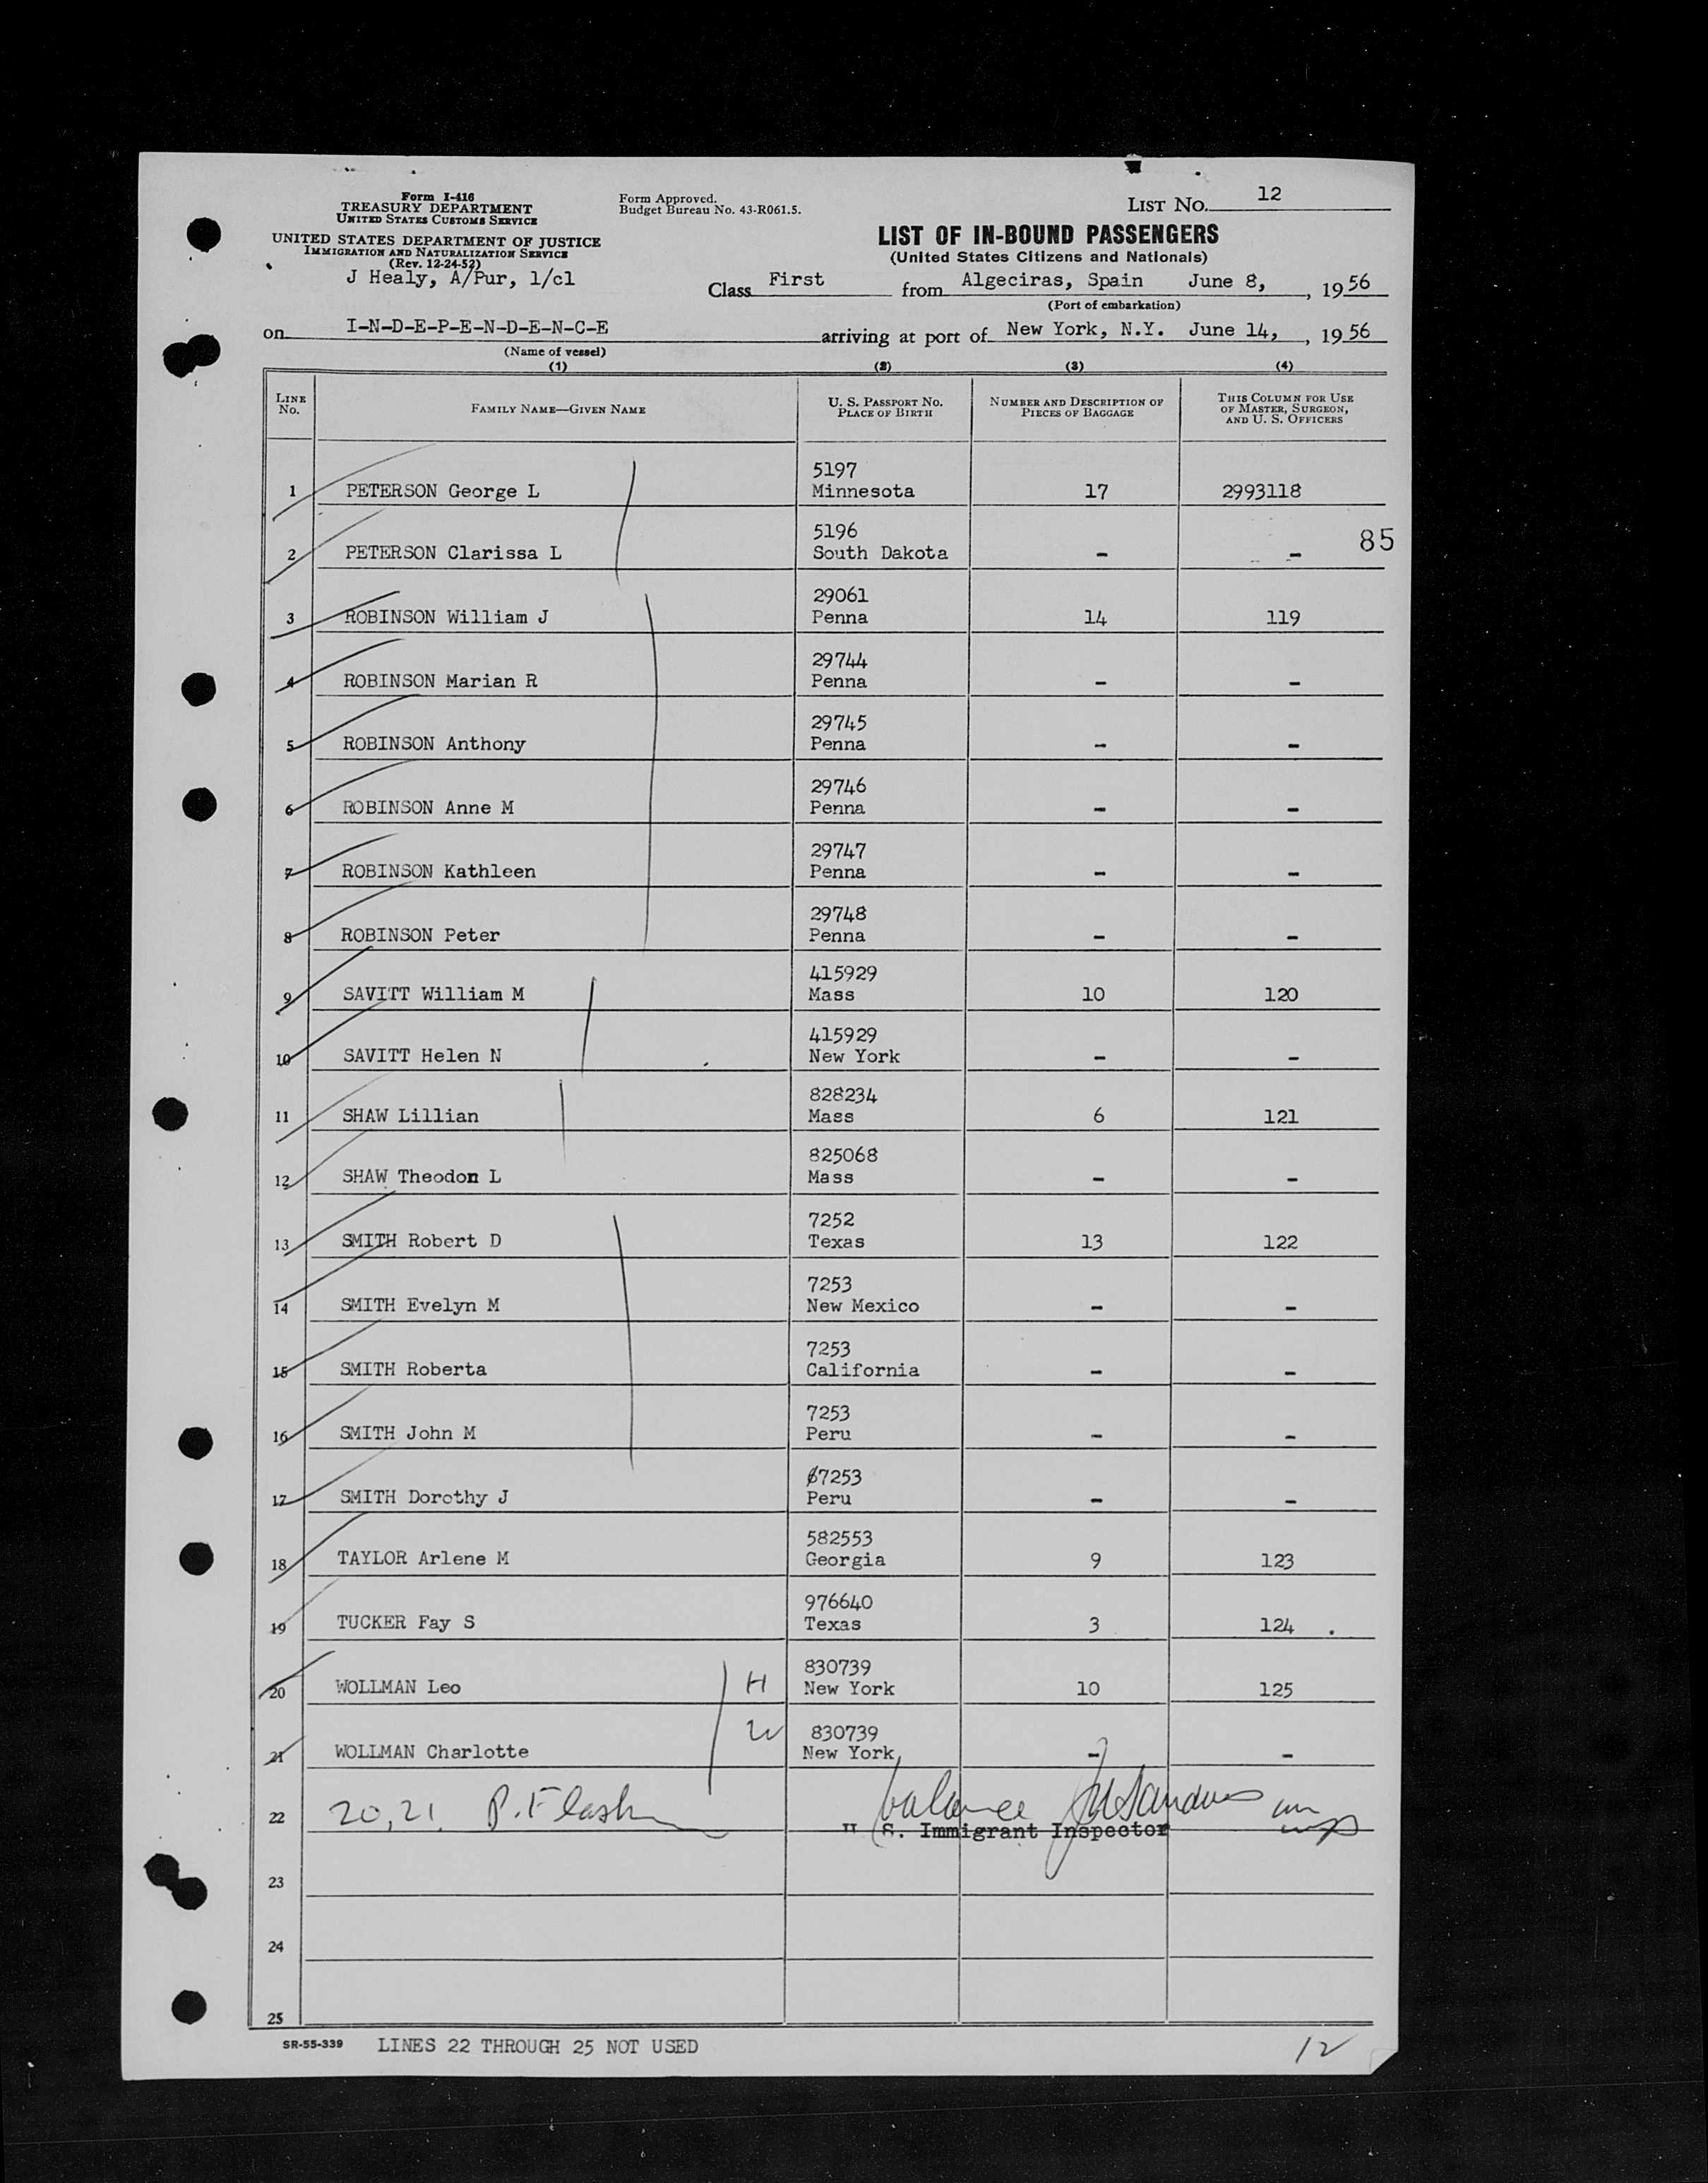 Form I-416
TREASURY DEPARTMENT
UNITED STATES CUSTOMS SERVICE
UNITED STATES DEPARTMENT OF JUSTICE
IMMIGRATION AND NATURALIZATION SERVICE
(Rev. 12-24-52)
J Healy, A/Pur, 1/cl
Form Approved.
Budget Bureau No. 43-R061.5.
LIST NO. 12
LIST OF IN-BOUND PASSENGERS
(United States Citizens and Nationals)
Class First from Algeciras, Spain June 8, , 1956
(Port of embarkation)
on I-N-D-E-P-E-N-D-E-N-C-E arriving at port of New York, N.Y. June 14, , 1956
(Name of vessel)
(1) (2) (3) (4)
LINE No. FAMILY NAME—GIVEN NAME U. S. PASSPORT NO. PLACE OF BIRTH NUMBER AND DESCRIPTION OF PIECES OF BAGGAGE THIS COLUMN FOR USE OF MASTER, SURGEON, AND U. S. OFFICERS
5197
1 PETERSON George L Minnesota 17 2993118
5196 85
2 PETERSON Clarissa L South Dakota - -
29061
3 ROBINSON William J Penna 14 119
29744
4 ROBINSON Marian R Penna - -
29745
5 ROBINSON Anthony Penna - -
29746
6 ROBINSON Anne M Penna - -
29747
7 ROBINSON Kathleen Penna - -
29748
8 ROBINSON Peter Penna - -
415929
9 SAVITT William M Mass 10 120
415929
10 SAVITT Helen N New York - -
828234
11 SHAW Lillian Mass 6 121
825068
12 SHAW Theodon L Mass - -
7252
13 SMITH Robert D Texas 13 122
7253
14 SMITH Evelyn M New Mexico - -
7253
15 SMITH Roberta California - -
7253
16 SMITH John M Peru - -
67253
17 SMITH Dorothy J Peru - -
582553
18 TAYLOR Arlene M Georgia 9 123
976640
19 TUCKER Fay S Texas 3 124 .
830739
20 WOLLMAN Leo H New York 10 125
W 830739
21 WOLLMAN Charlotte New York - -
22 20, 21, P. Flash balance
U. S. Immigrant Inspector
23
24
25
SR-55-339 LINES 22 THROUGH 25 NOT USED 12